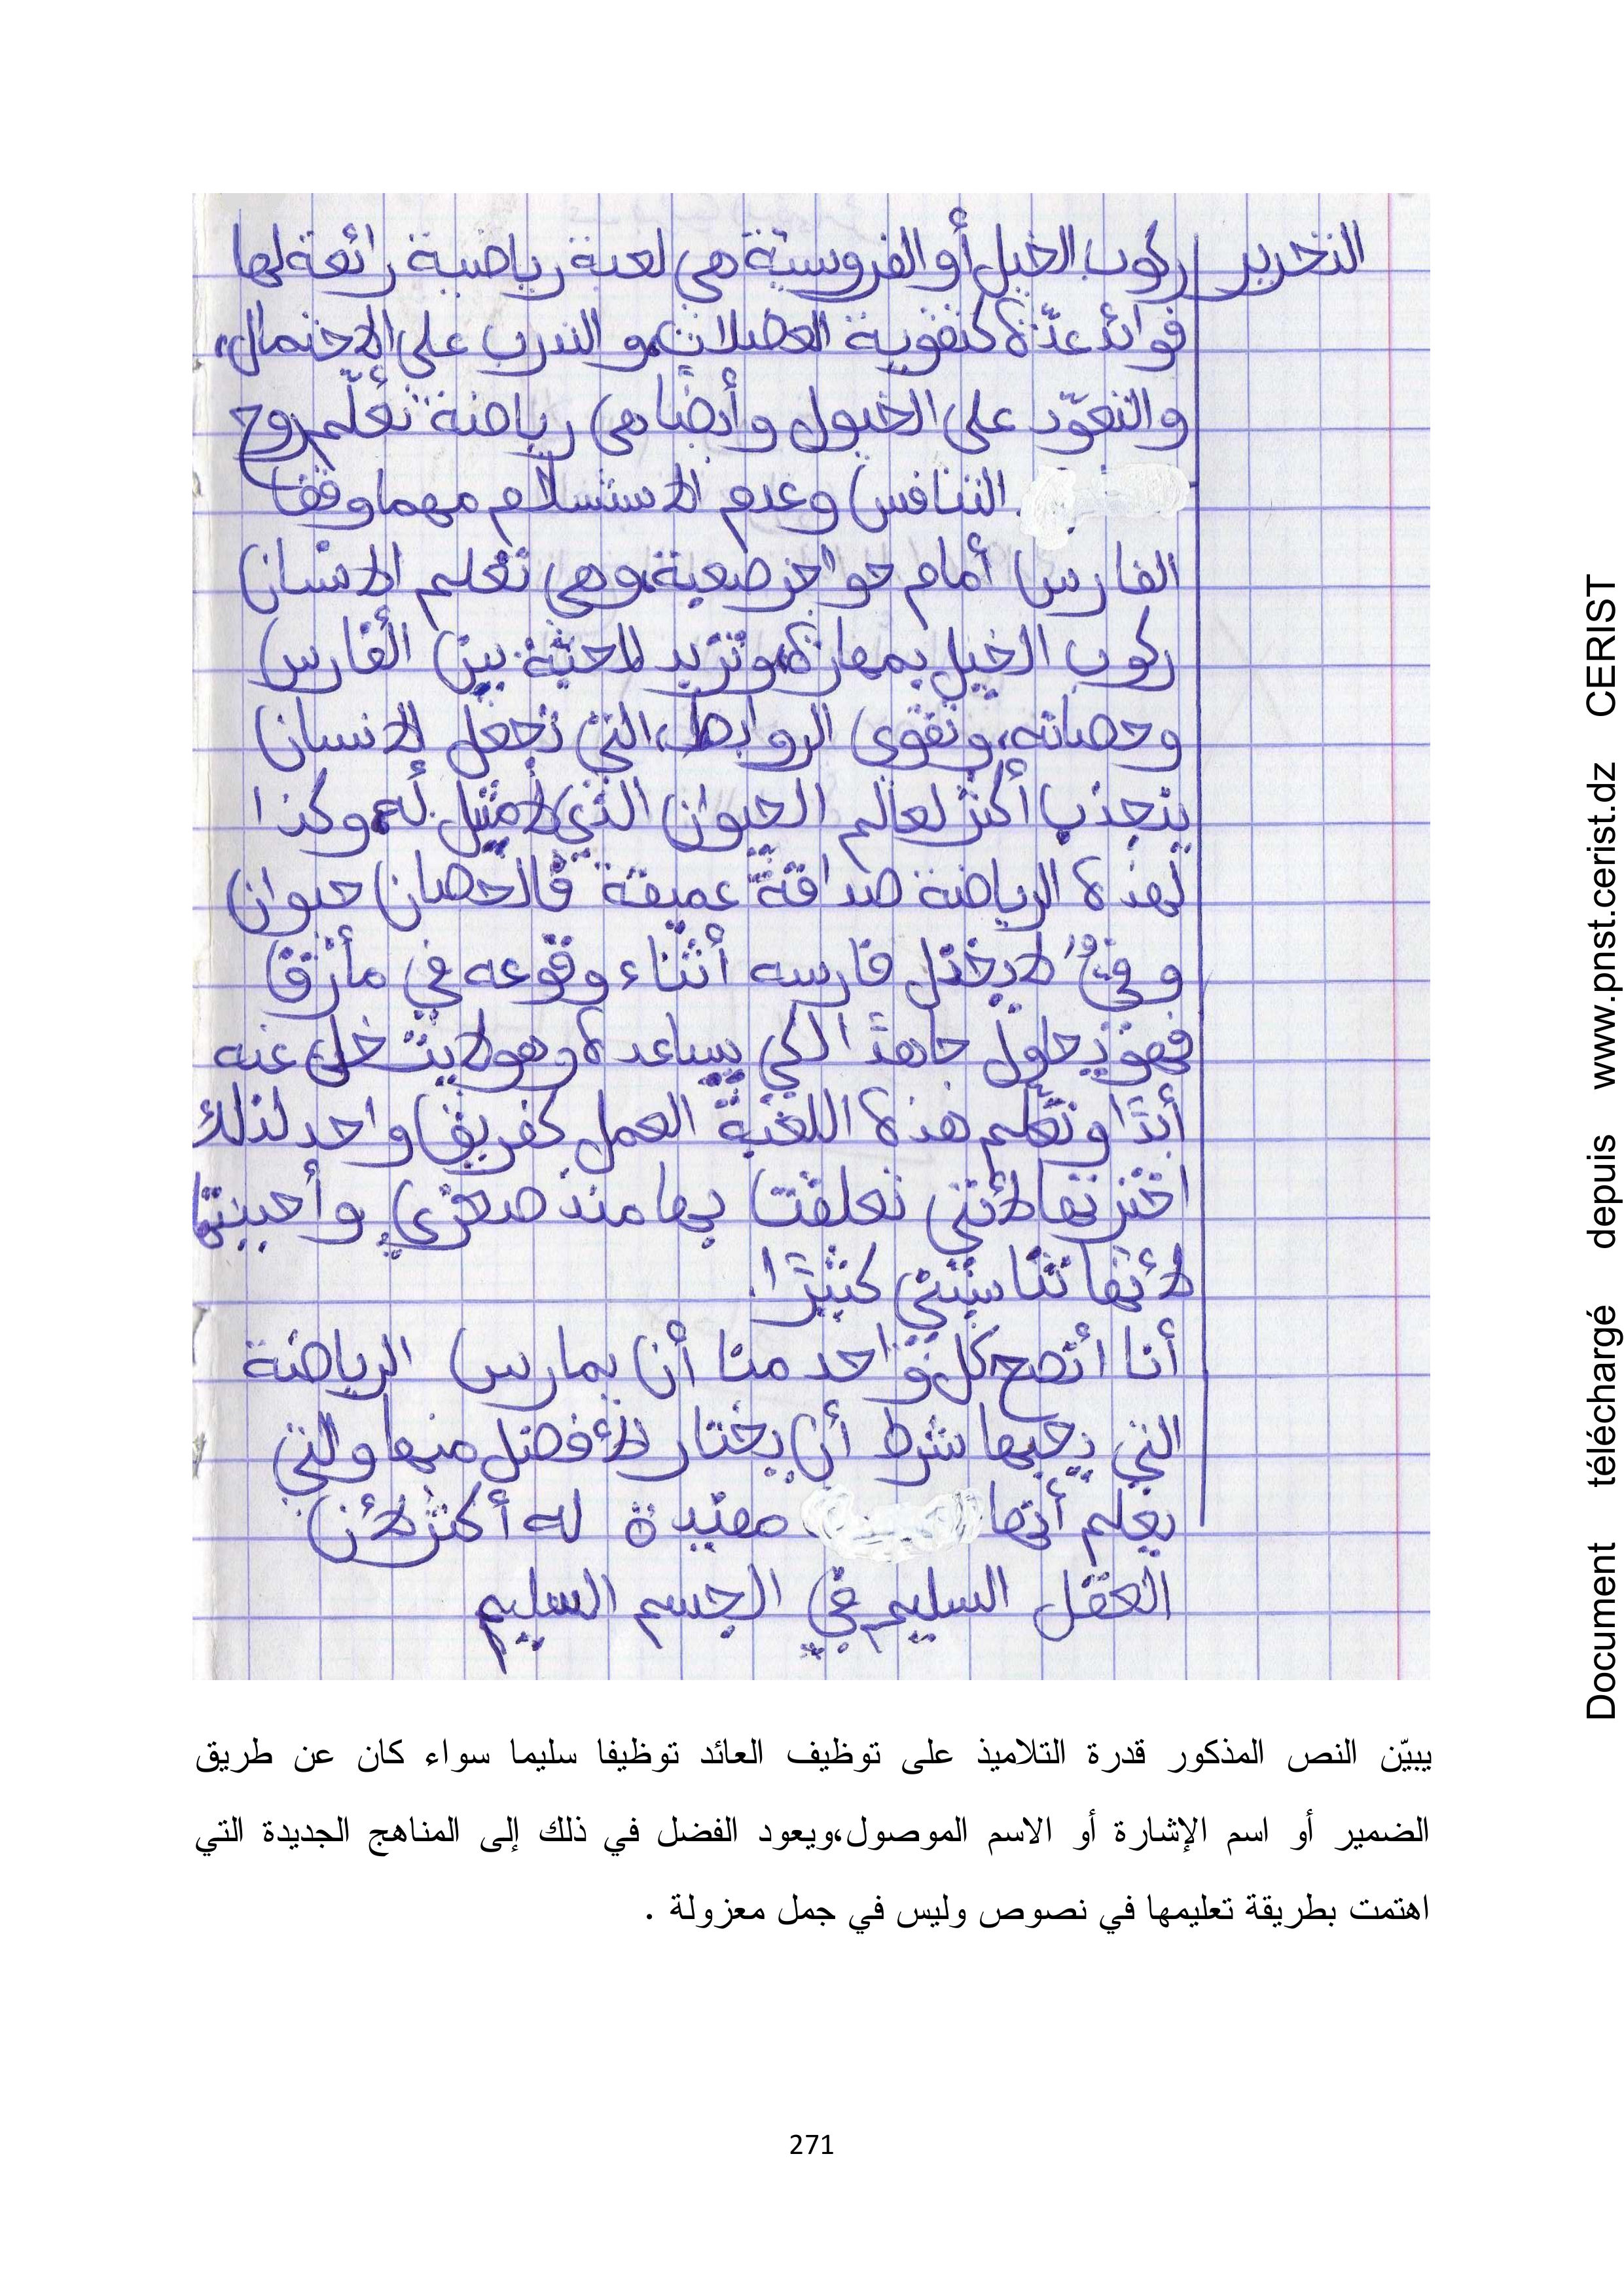 التحرير ركوب الخيل أو الفروسية هي لعبة رياضية رائعة لها
فوائد عدّة كتقوية العضلات، و التدرب على الاحتمال،
والتعوّد على الخيول وأيضا هي رياضة تعلّم روح
التنافس وعدم الاستسلام مهما وقف
الفارس أمام حواجز صعبة، وهي تعلم الانسان
ركوب الخيل بمهارة، وتزيد المحبّة بين الفارس
وحصانه، وتقوى الروابط، التي تجعل الانسان
ينجذب أكثر لعالم الحيوان الذي لا مثيل له، وكذا
لهذه الرياضة صداقة عميقة فالحصان حيوان
وفيٌّ لا يخذل فارسه أثناء وقوعه في مأزق
فهو يحاول جاهدًا لكي يساعده وهو لا يتخلى عنه
أبدًا وتعلم هذه اللعبة العمل كفريق واحد لذلك
اخترتها لأنني تعلقت بها منذ صغري وأحببتها
لأنها تناسبني كثيرًا.
أنا أنصح كل واحد منا أن يمارس الرياضة
التي يحبها شرط أن يختار الأفضل منها والتي
يعلم أنها مفيدة له أكثر لأن
العقل السليم في الجسم السليم
يبيّن النص المذكور قدرة التلاميذ على توظيف العائد توظيفا سليما سواء كان عن طريق
الضمير أو اسم الإشارة أو الاسم الموصول،ويعود الفضل في ذلك إلى المناهج الجديدة التي
اهتمت بطريقة تعليمها في نصوص وليس في جمل معزولة .
271
Document téléchargé depuis www.pnst.cerist.dz CERIST